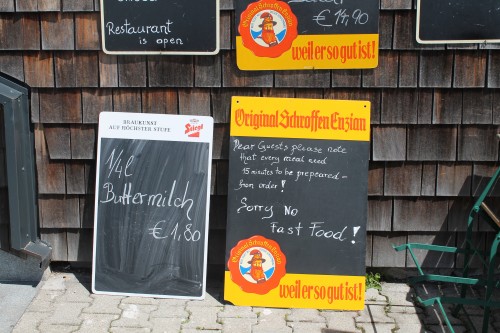 Restaurant
is open
€ 14,90
weil er so gut ist!
BRAUKUNST
AUF HÖCHSTER STUFE
Stiegl
1/4l
Buttermilch
€ 1,80
Original Schroffen Enzian
Dear Guests please note
that every meal need
15 minutes to be prepeared -
from order!
Sorry No
Fast Food!
weil er so gut ist!